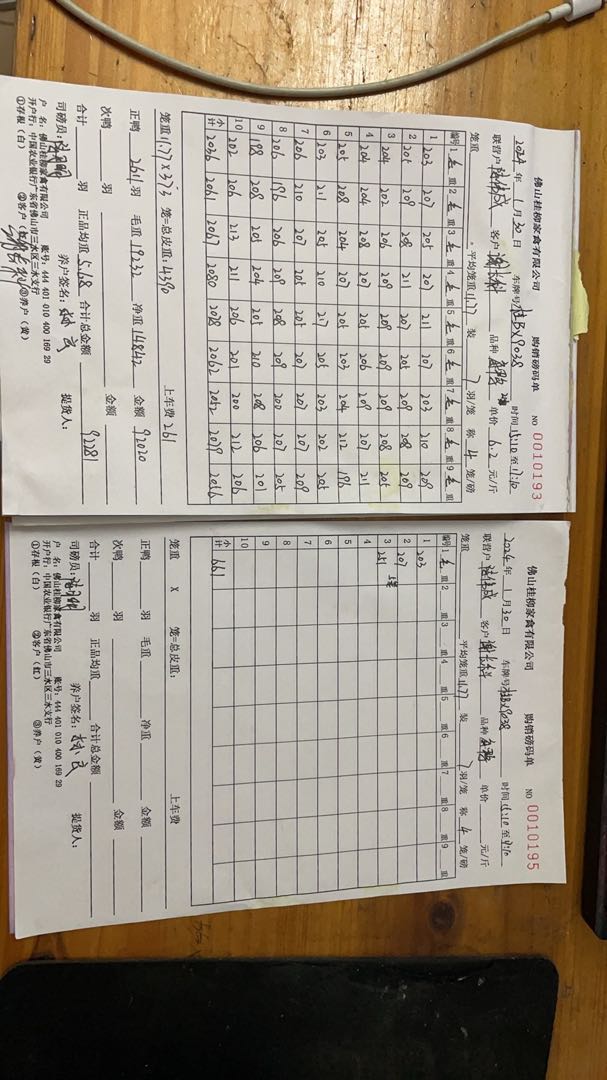 佛山桂柳家禽有限公司 购销磅码单 NO 0010193
2024年 1月30日 车牌号桂BX9038 时间15:10至17:10
联营户 客户 品种 单价 6.2 元/斤
笼重 平均笼重11.77 装 7 羽/笼 称 4 笼/磅
编号 1毛重 2毛重 3毛重 4毛重 5毛重 6毛重 7毛重 8毛重 9毛重
1 203 207 205 207 211 207 203 210 209
2 205 209 208 211 207 205 209 208 209
3 204 202 206 209 211 209 205 208 205
4 204 204 208 207 209 206 209 207 211
5 205 208 204 207 205 203 204 212 196
6 203 211 205 210 217 205 203 202 205
7 206 210 207 206 205 207 207 207 209
8 206 196 206 209 208 209 200 207 207
9 198 208 205 204 209 210 208 206 201
10 202 206 213 211 206 201 200 212 206
小计 2036 2061 2067 2080 2078 2062 2052 2079 2056
笼重11.77 X 373 笼=总皮重:4390 上车费261
正鸭 2611 羽 毛重 19232 净重 14842 金额 92020
次鸭 羽 金额
合计 羽 正品均重 5.68 合计总金额 92281
司磅员: 养户签名: 提货人:
户 名:佛山桂柳家禽有限公司 账号:444 401 010 400 169 29
开户行:中国农业银行广东省佛山市三水区三水支行
①存根(白) ②客户(红) ③养户(黄)
佛山桂柳家禽有限公司 购销磅码单 NO 0010195
2024年 1月30日 车牌号桂BX9038 时间15:10至17:10
联营户 客户 品种 单价 元/斤
笼重 平均笼重11.77 装 7 羽/笼 称 4 笼/磅
编号 1毛重 2 重 3 重 4 重 5 重 6 重 7 重 8 重 9 重
1 203
2 207
3 251 5笼
4
5
6
7
8
9
10
小计 661
笼重 X 笼=总皮重: 上车费
正鸭 羽 毛重 净重 金额
次鸭 羽 金额
合计 羽 正品均重 合计总金额
司磅员: 养户签名: 提货人:
户 名:佛山桂柳家禽有限公司 账号:444 401 010 400 169 29
开户行:中国农业银行广东省佛山市三水区三水支行
①存根(白) ②客户(红) ③养户(黄)